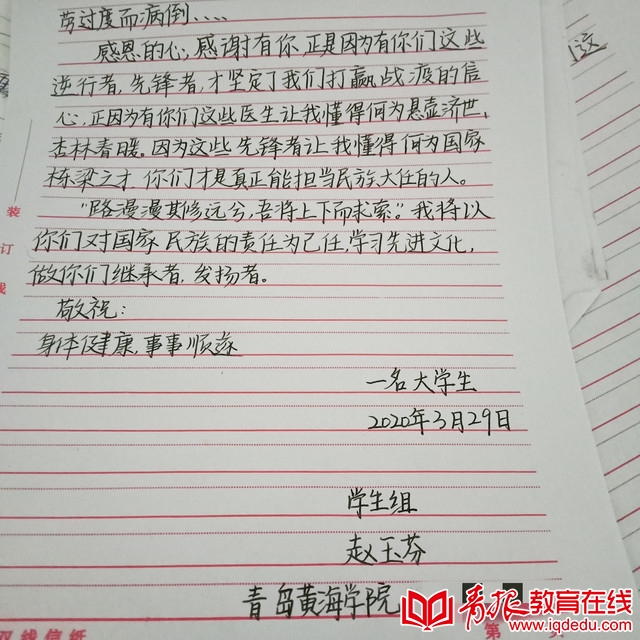 劳过度而病倒....
感恩的心,感谢有你,正是因为有你们这些
逆行者,先锋者,才坚定了我们打赢战疫的信
心,正因为有你们这些医生让我懂得何为悬壶济世,
杏林春暖。因为这些先锋者让我懂得何为国家
栋梁之才,你们才是真正能担当民族大任的人。
"路漫漫其修远兮,吾将上下而求索。"我将以
你们对国家民族的责任为己任,学习先进文化,
做你们继承者,发扬者。
敬祝:
身体健康,事事顺遂
一名大学生
2020年3月29日
学生组
赵玉芬
青岛黄海学院
装
订
线
双线信纸
第
这
青报教育在线
www.iqdedu.com